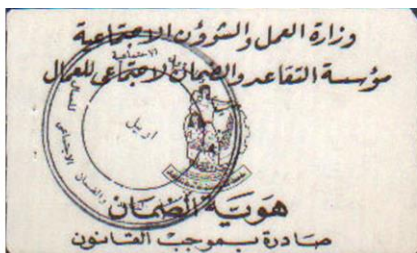 وزارة العمل والشؤون الاجتماعية
مؤسسة التقاعد والضمان الاجتماعي للعمال
اربيل
والضمان الاجتماعي
للعمال
هوية الضمان
صادرة بموجب القانون